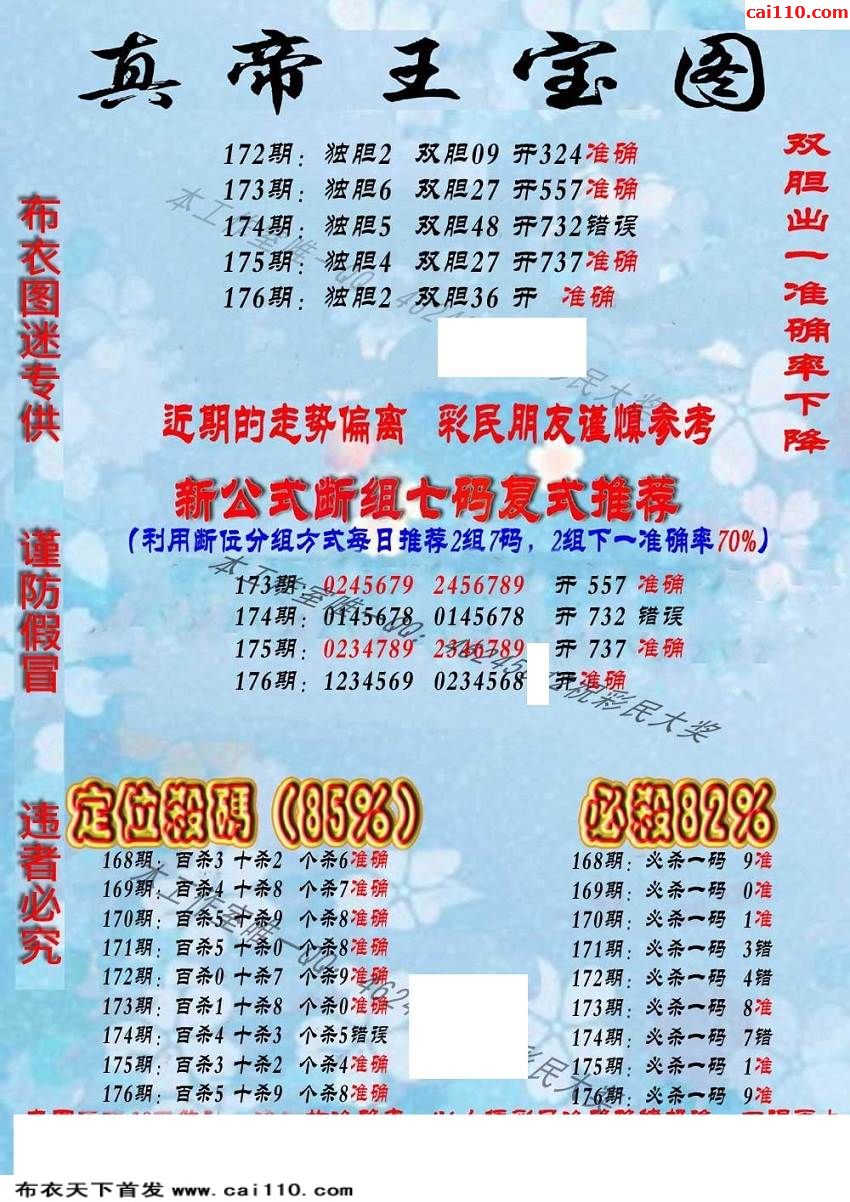 cai110.com
真帝王宝图
172期：独胆2 双胆09 开324准确
173期：独胆6 双胆27 开557准确
174期：独胆5 双胆48 开732错误
175期：独胆4 双胆27 开737准确
176期：独胆2 双胆36 开 准确
双胆出一准确率下降
布衣图迷专供
谨防假冒
违者必究
近期的走势偏离 彩民朋友谨慎参考
新公式断组七码复式推荐
（利用断位分组方式每日推荐2组7码，2组下一准确率70%）
173期：0245679 2456789 开 557 准确
174期：0145678 0145678 开 732 错误
175期：0234789 2346789 开 737 准确
176期：1234569 0234568 开准确
定位殺碼（85%）
168期：百杀3 十杀2 个杀6准确
169期：百杀4 十杀8 个杀7准确
170期：百杀5 十杀9 个杀8准确
171期：百杀5 十杀0 个杀8准确
172期：百杀0 十杀7 个杀9准确
173期：百杀1 十杀8 个杀0准确
174期：百杀4 十杀3 个杀5错误
175期：百杀3 十杀2 个杀4准确
176期：百杀5 十杀9 个杀8准确
必殺82%
168期：必杀一码 9准
169期：必杀一码 0准
170期：必杀一码 1准
171期：必杀一码 3错
172期：必杀一码 4错
173期：必杀一码 8准
174期：必杀一码 7错
175期：必杀一码 1准
176期：必杀一码 9准
布衣天下首发 www.cai110.com